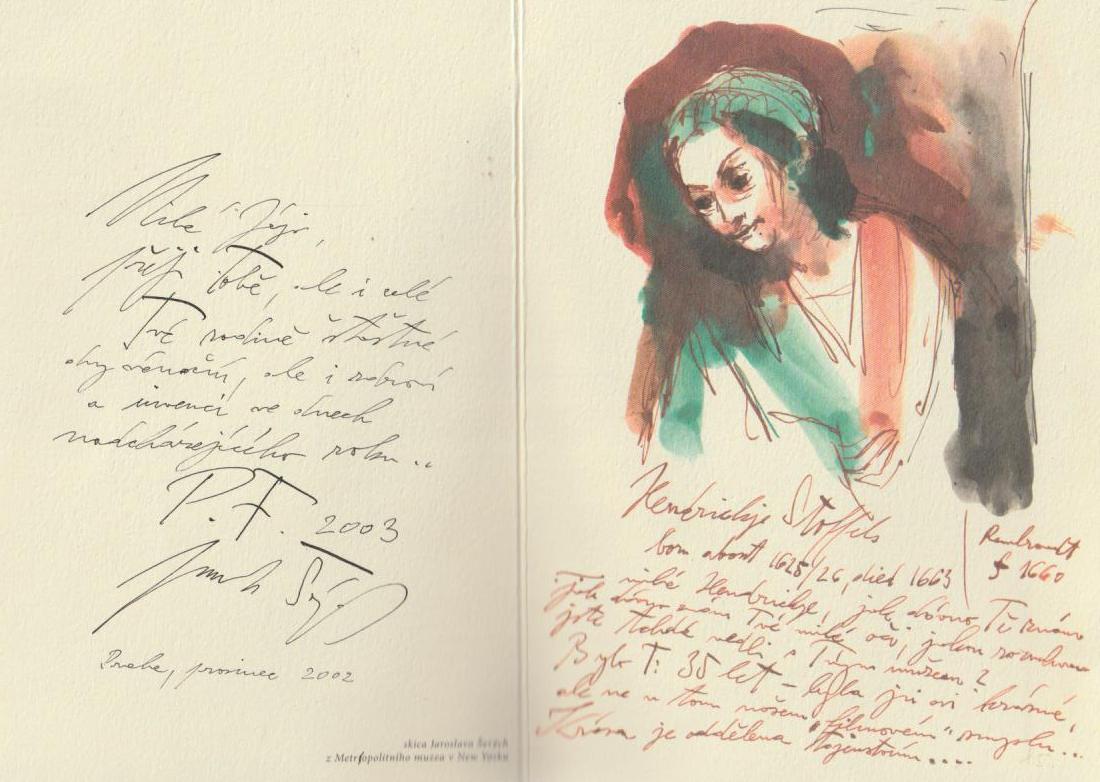 Milé Jájo,
přeji Tobě, ale i celé
Tvé rodině šťastné
dny vánoční, ale i zdraví
a invenci ve dnech
nadcházejícího roku..
P.F. 2003
Praha, prosinec 2002
skica Jaroslava Šerých
z Metropolitního muzea v New Yorku
Hendrickje Stoffels
born about 1625/26, died 1663
Rembrandt
1660
milé Hendrickje, jak dávno Tě znám
jak dávno znám Tvé milé oči, jakou
jste vedli s Tvým mužem?
Bylo Ti 35 let – byla jsi asi krásná,
ale ne v tom našem "filmovém" smyslu...
Krása je oddělena tajemstvím....